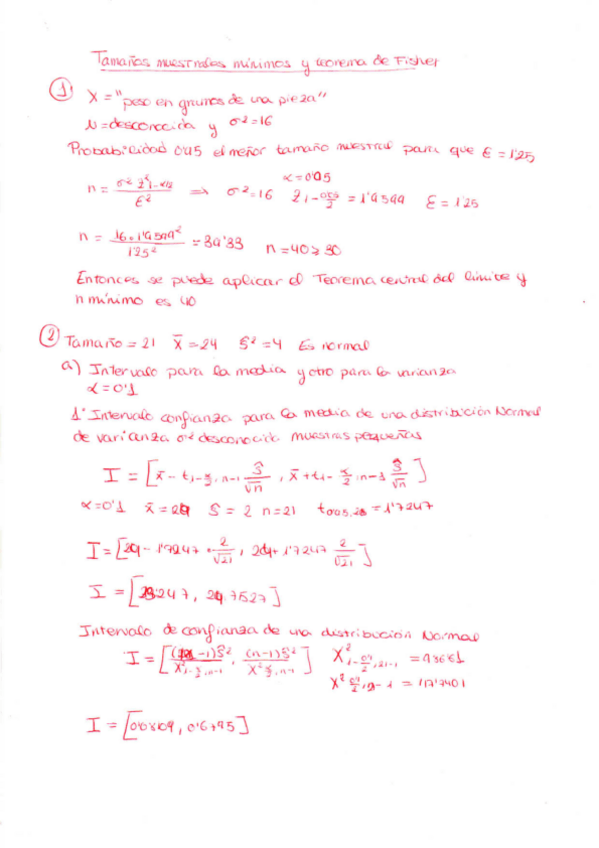 Tamaños muestrales mínimos y teorema de Fisher
① X = "peso en gramos de una pieza"
μ = desconocida y σ² = 16
Probabilidad 0'95 el menor tamaño muestral para que ε = 1'25
α = 0'05
n = σ² Z²₁₋α/₂ / ε² ⇒ σ² = 16 Z₁₋0'05/2 = 1'9599 ε = 1'25
n = 16 · 1'9599² / 1'25² = 39'33 n = 40 ≥ 30
Entonces se puede aplicar el Teorema central del límite y
n mínimo es 40
② Tamaño = 21 x̄ = 24 S² = 4 Es normal
a) Intervalo para la media y otro para la varianza
α = 0'1
1° Intervalo confianza para la media de una distribución Normal
de varianza σ² desconocida muestras pequeñas
I = [x̄ − t₁₋α/₂, n−1 Ŝ/√n , x̄ + t₁₋α/₂, n−1 Ŝ/√n]
α = 0'1 x̄ = 24 S = 2 n = 21 = 1'7247
I = [24 − 1'7247 · 2/√21 , 24 + 1'7247 2/√21]
I = [23'247, 24'7527]
Intervalo de confianza de una distribución Normal
I = [(n−1)Ŝ² / X²₁₋α/₂, n−1 , (n−1)Ŝ² / X²α/₂, n−1]
I =